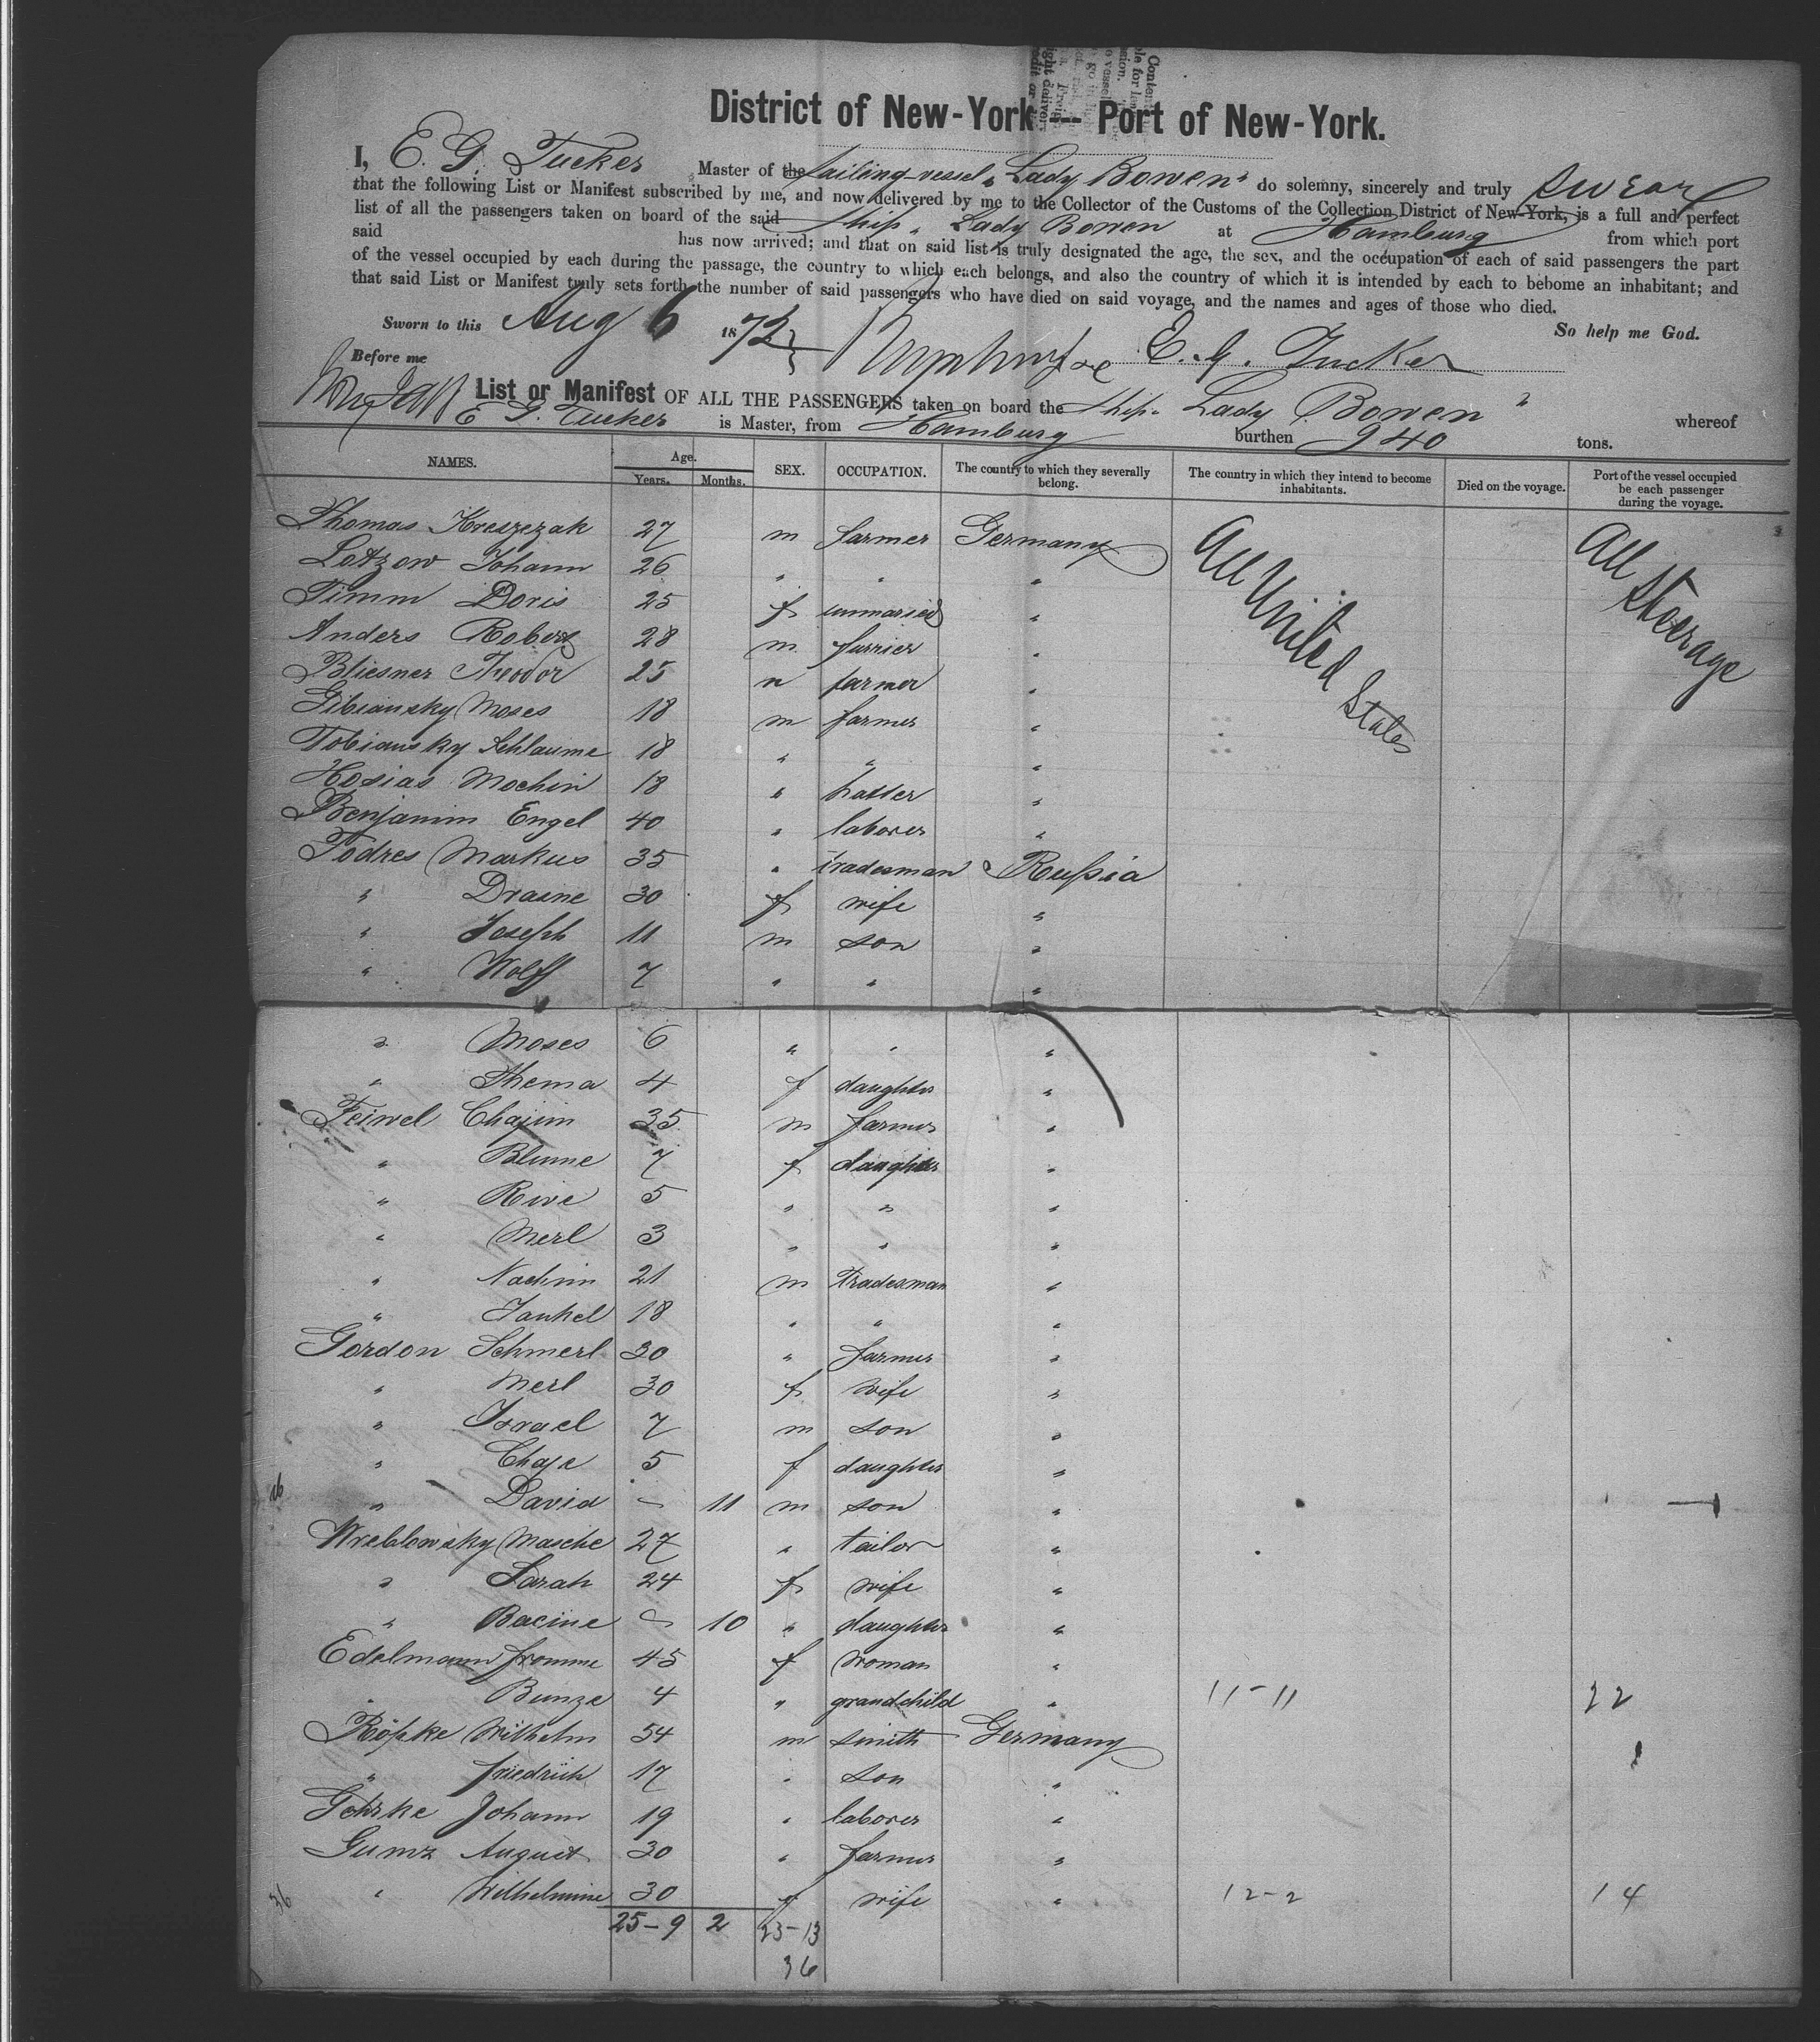 District of New-York --- Port of New-York.
I, E. G. Tucker Master of the sailing vessel "Lady Bowen" do solemny, sincerely and truly swear
that the following List or Manifest subscribed by me, and now delivered by me to the Collector of the Customs of the Collection District of New-York, is a full and perfect
list of all the passengers taken on board of the said ship "Lady Bowen at Hamburg from which port
said has now arrived; and that on said list is truly designated the age, the sex, and the occupation of each of said passengers the part
of the vessel occupied by each during the passage, the country to which each belongs, and also the country of which it is intended by each to bebome an inhabitant; and
that said List or Manifest truly sets forth the number of said passengers who have died on said voyage, and the names and ages of those who died.
Sworn to this Aug 6 1872 So help me God.
Before me E. G. Tucker
List or Manifest OF ALL THE PASSENGERS taken on board the ship "Lady Bowen" whereof
E G. Tucker is Master, from Hamburg burthen 940 tons.
NAMES. Age. Years. Months. SEX. OCCUPATION. The country to which they severally belong. The country in which they intend to become inhabitants. Died on the voyage. Port of the vessel occupied be each passenger during the voyage.
Thomas Kreszezak 27 m farmer Germany All United States All Steerage
Lotzow Johann 26 " " "
Timm Doris 25 f unmaried "
Anders Robert 28 m furrier "
Bliesner Theodor 25 m farmer "
Gibiansky Moses 18 m farmer "
Tobiansky Schlaume 18 " " "
Hosias Mochin 18 " hatter "
Benjamin Engel 40 " laborer "
Todres Markus 35 " tradesman Russia
" Drasne 30 f wife "
" Joseph 11 m son "
" Wolff 7 " " "
" Moses 6 " " "
" Thema 4 f daughter "
Feiwel Chajim 35 m farmer "
" Blume 7 f daughter "
" Rive 5 " " "
" Merl 3 " " "
" Nochim 21 m tradesman "
" Jankel 18 " " "
Gordon Schmerl 30 " farmer "
" Merl 30 f wife "
" Israel 7 m son "
" Chaje 5 f daughter "
" David - 11 m son "
Wreblowsky Masche 27 " tailor "
" Sarah 24 f wife "
" Bacine - 10 " daughter "
Edelmann Fromme 45 f woman "
" Bunze 4 " grandchild " 11-11 22
Röpke Wilhelm 54 m smith Germany
" Friedrich 17 " son "
Gehrke Johann 19 " laborer "
Gumz August 30 " farmer "
36 " Wilhelmine 30 f wife " 12-2 14
25-9 2 23-13
36